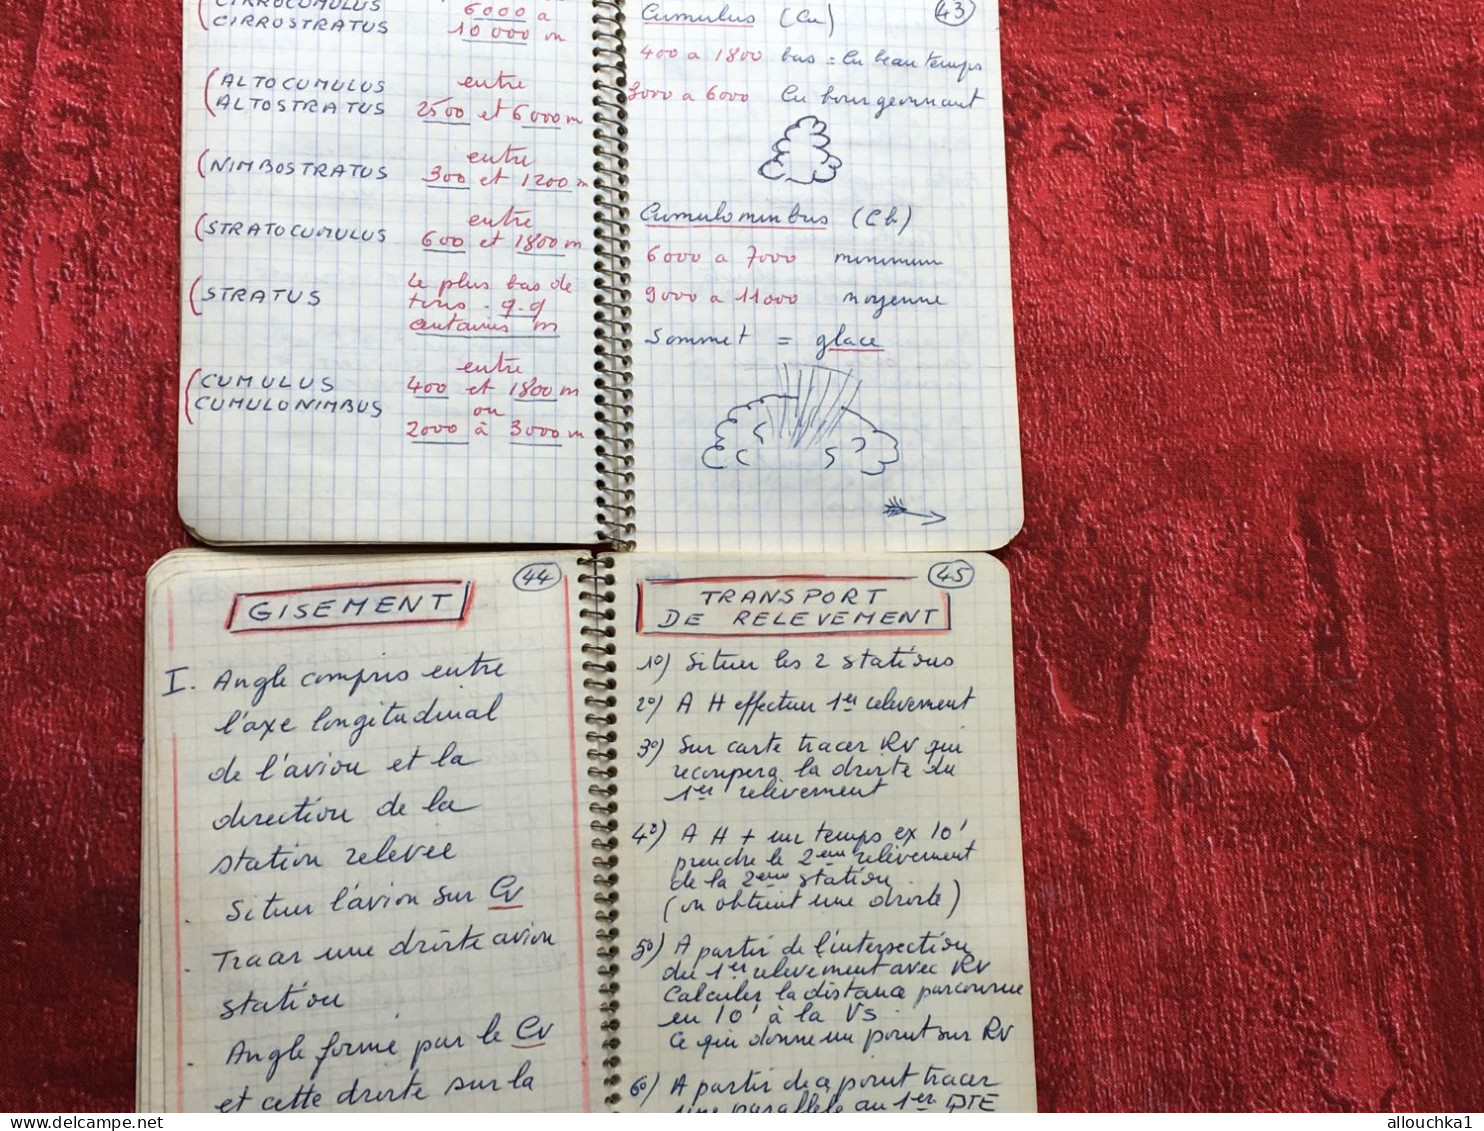 CIRROCUMULUS
CIRROSTRATUS
6000 a
10 000 m
ALTOCUMULUS
ALTOSTRATUS
entre
2500 et 6000m
NIMBOSTRATUS
entre
300 et 1200m
STRATOCUMULUS
entre
600 et 1800m
STRATUS
Le plus bas de
tous - q.q
centaines m
CUMULUS
CUMULONIMBUS
entre
400 et 1800m
ou
2000 à 3000m
43
Cumulus (Cu)
400 a 1800 bas = Cu beau temps
3000 a 6000 Cu bourgeonnant
Cumulonimbus (Cb)
6000 a 7000 minimum
9000 a 11000 moyenne
Sommet = glace
44
GISEMENT
I. Angle compris entre
l'axe longitudinal
de l'avion et la
direction de la
station relevée
Situer l'avion sur Cv
Tracer une droite avion
station
Angle formé par le Cv
et cette droite sur la
45
TRANSPORT
DE RELEVEMENT
1°) Situer les 2 stations
2°) A H effectuer 1er relevement
3°) Sur carte tracer Rv qui
recoupera la droite du
1er relèvement
4°) A H + un temps ex 10'
prendre le 2eme relèvement
de la 2eme station
(on obtient une droite)
5°) A partir de l'intersection
du 1er relevement avec Rv
Calculer la distance parcourue
en 10' à la Vs
Ce qui donne un point sur Rv
6°) A partir de ce point tracer
une parallèle au 1er DTE
allouchka1